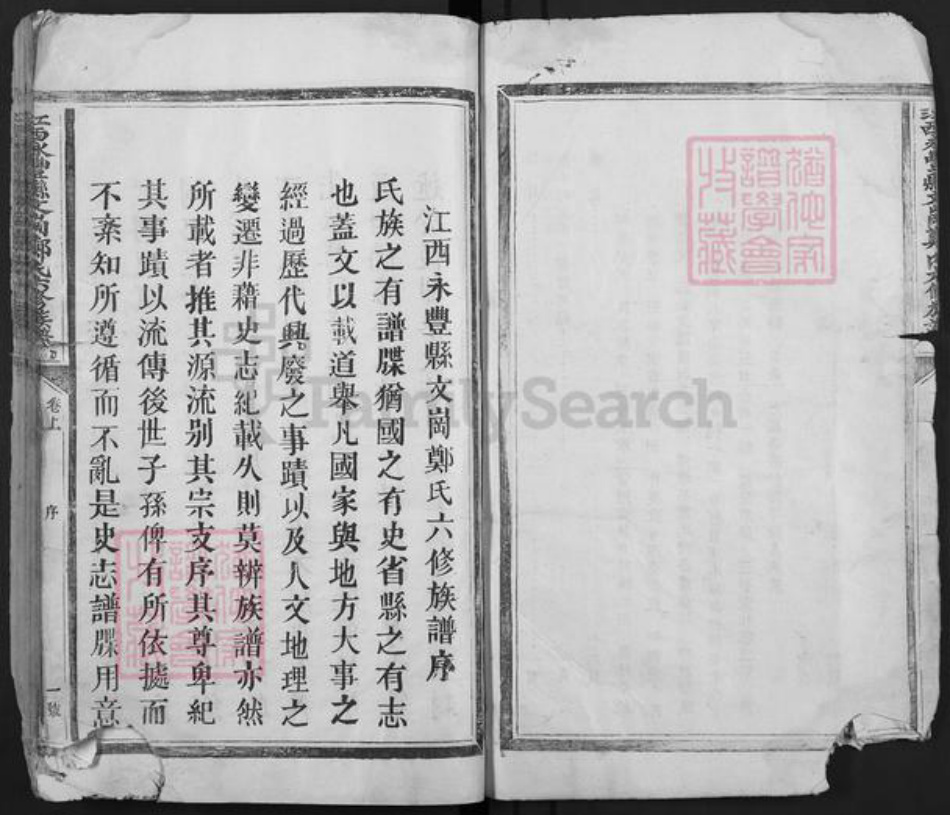 江西永豐縣文崗鄭氏六修族譜序
氏族之有譜牒猶國之有史省縣之有志
也蓋文以載道舉凡國家與地方大事之
經過歷代興廢之事蹟以及人文地理之
變遷非藉史志紀載久則莫辨族譜亦然
所載者推其源流別其宗支序其尊卑紀
其事蹟以流傳後世子孫俾有所依據而
不紊知所遵循而不亂是史志譜牒用意
卷上
序
一號
譜學會
收藏
FamilySearch